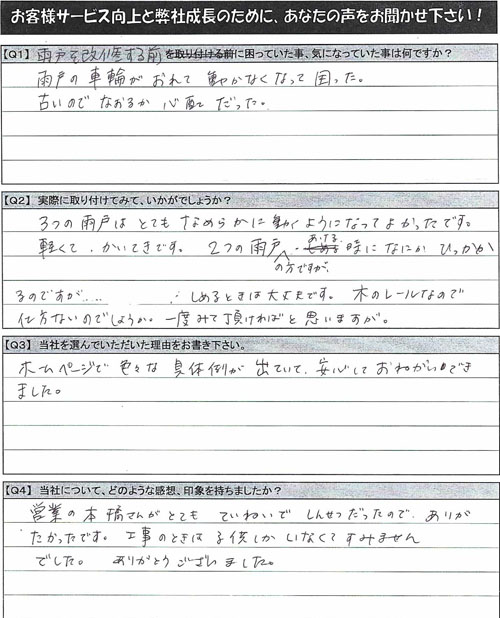 お客様サービス向上と弊社成長のために、あなたの声をお聞かせ下さい！
【Q1】雨戸を改修する前を取り付ける前に困っていた事、気になっていた事は何ですか？
雨戸の車輪がおれて動かなくなって困った。
古いのでなおるか心配だった。
【Q2】実際に取り付けてみて、いかがでしょうか？
3つの雨戸はとてもなめらかに動くようになってよかったです。
軽くて、かいてきです。2つの雨戸の方ですが、しめるあける時になにかひっかか
るのですが.....しめるときは大丈夫です。木のレールなので
仕方ないのでしょうか。一度みて頂ければと思いますが。
【Q3】当社を選んでいただいた理由をお書き下さい。
ホームページで色々な具体例が出ていて、安心しておねがいでき
ました。
【Q4】当社について、どのような感想、印象を持ちましたか？
営業の本橋さんがとてもていねいでしんせつだったので、ありが
たかったです。工事のときは子供しかいなくてすみません
でした。ありがとうございました。